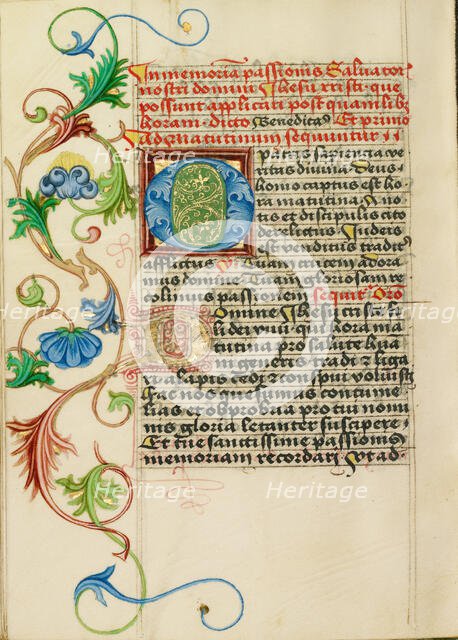 In memoria passionis Saluator
nostri domini Jhesu xpisti que
possunt applicari post quamlibz
horam dicto Benedicta Et primo
ad matutinum sequuntur
O patris sapiencia ve
ritas divina Deus
homo captus est ho
ra matutina A no
tis et discipulis cito
derelictus A Iudeis
est venditus traditz
afflictus
recolimus passionem sequitr Oro
Domine Jhesu xpiste fi
li dei viui qui hora ma
tutina pro salute hu
mani generis tradi z liga
ri alapis cedi z conspui voluisti
fac nos quesumus contume
lias et obprobria pro tui nomi
nis gloria letanter suscipere
Et tue sanctissime passionis
memoriam recordari
Heritage
Heritage
Heritage
Heritage
Heritage
Heritage